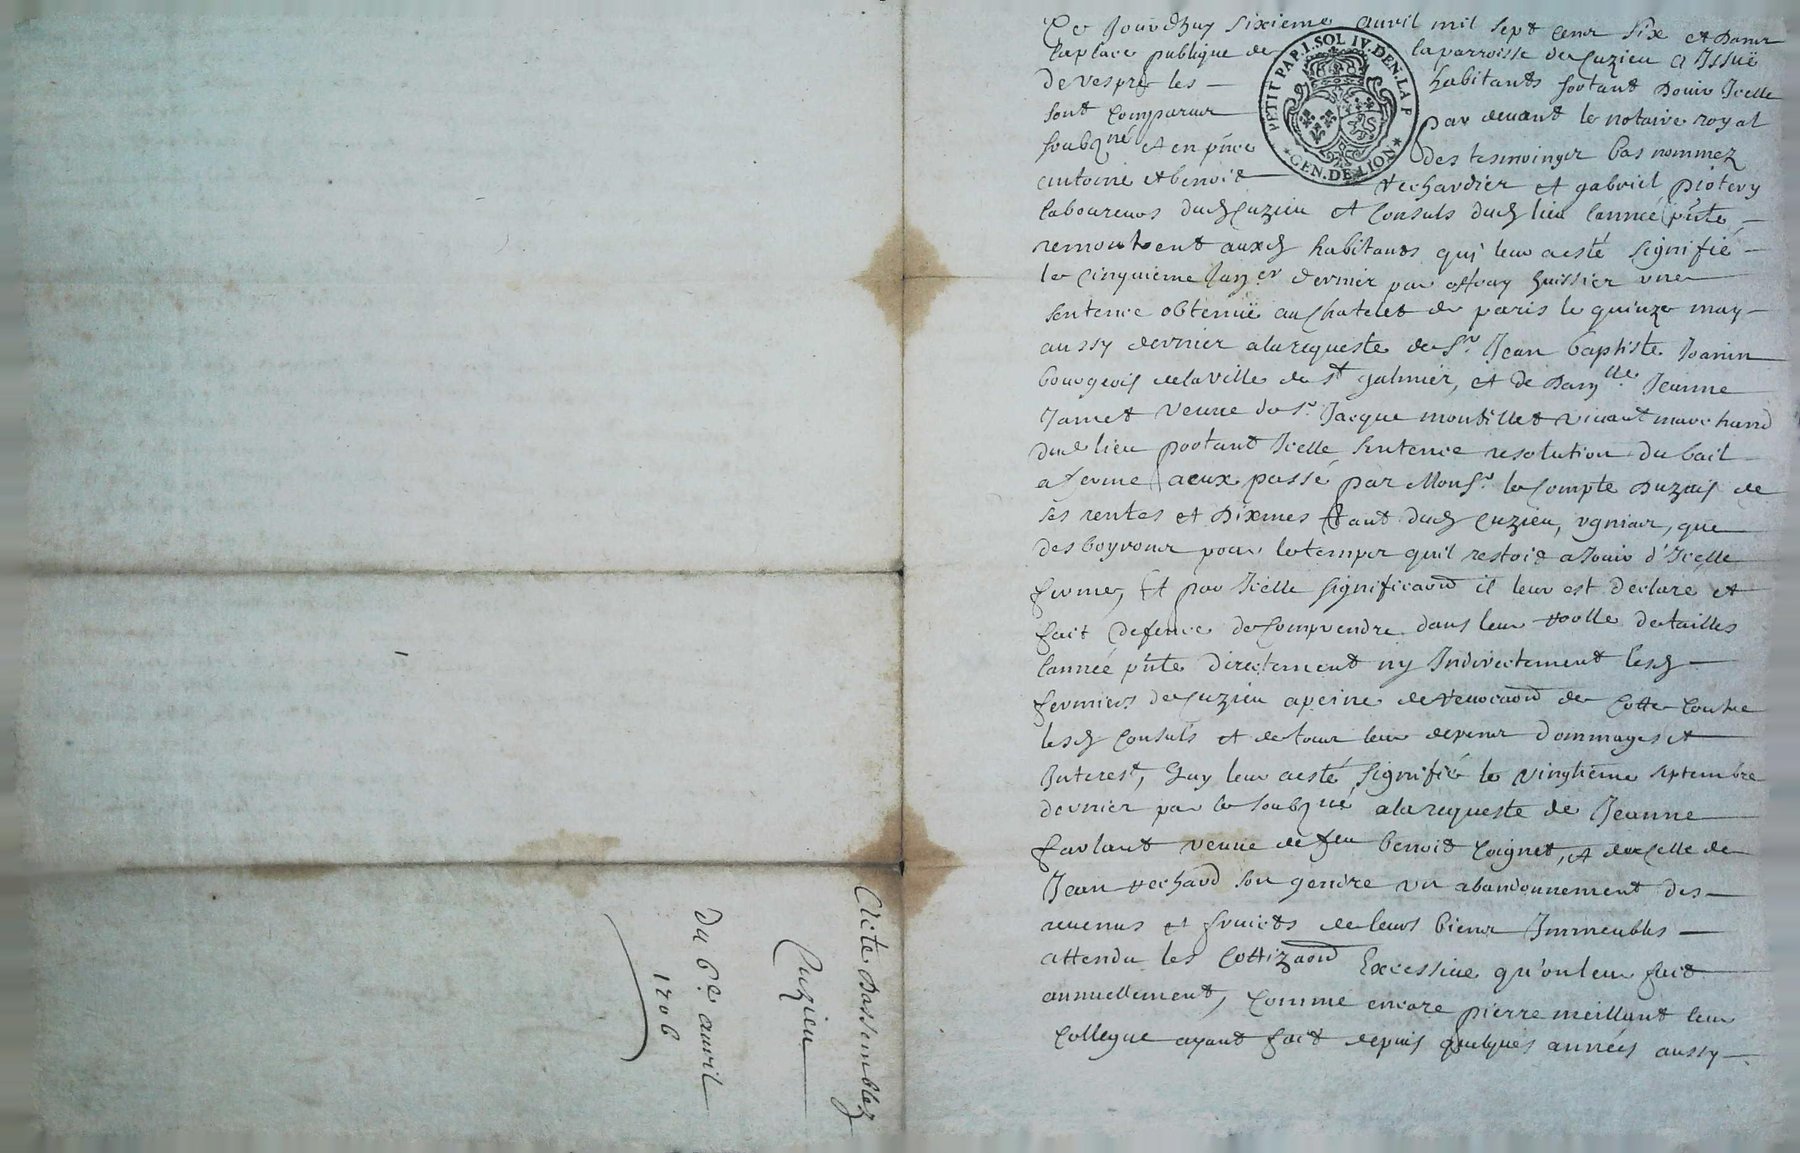 Acte dassemblée
Cuzieu
Du 6e auvril
1706
Ce Jourdhuy sixieme auvril mil sept cens six et dans
la place publique de la parroisse de Cuzieu a Issuë
de vespre les habitants sortant Douir Icelle
sont comparus par devant le notaire royal
soubzné et en pñce des tesmoingts bas nommez
antoine et benoit rechardier et gabriel piotery
laboureurs dud Cuzieu et Consuls dud lieu lannée pñte
remontrent auxd habitants qui leur a esté signifié
le cinquieme Janer dernier par huissier une
sentence obtenuë au Chatelet de paris le quinze may
aussy dernier a la requeste de Sr Jean baptiste Joanin
bourgeois de la ville de St galmier, et de Damlle Jeanne
Jamet veuve de Sr Jacque montillet vivant marchand
dud lieu portant Icelle sentence resolution du bail
a ferme a eux passé par Monsr le Compte Duzais de
ses rentes et Dixmes tant dud Cuzieu, que
des boyronr pour le temps quil restoit a Jouir d'Icelle
ferme, Et par Icelle significaõn il leur est declare et
fait defence de Comprendre dans leur roolle de tailles
lannée pñte directement ny Indirectement lesd
fermiers de Cuzieu a peine de revocaõn de Cotte Contre
lesd Consuls et de tous leur depens dommages et
Interest, Quy leur a esté signifié le vingtieme septembre
dernier par le soubzné a la requeste de Jeanne
farlant veuve de feu benoit Coignet, et de Celle de
Jean rechard son gendre un abandonnement des
revenus et fruicts de leurs biens Immeubles
attendu les Cottizaõn Excessive qu'on leur fait
annuellement, Comme encore pierre meillant leur
Collegue ayant fait depuis quelques années aussy
PETIT PAP. I. SOL IV. DEN. LA F
GEN. DE LION